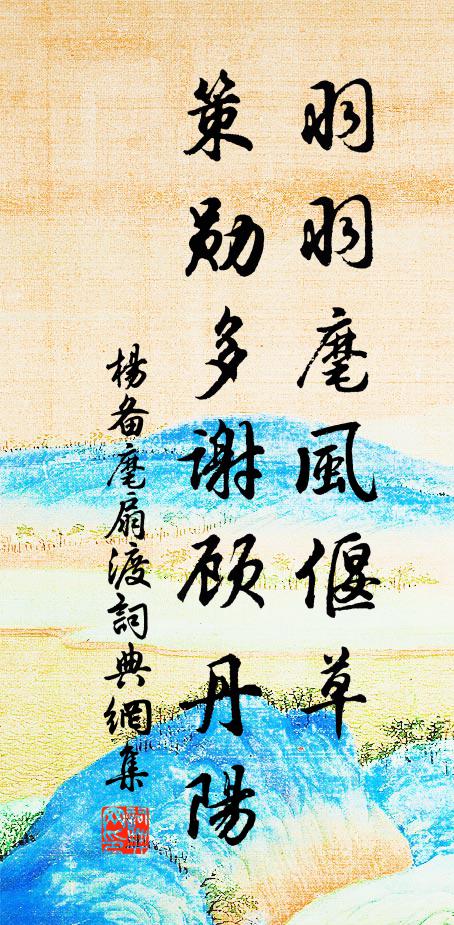 羽羽麾風偃草
策勛多謝顧丹陽
楊备麾扇渡詞典網集